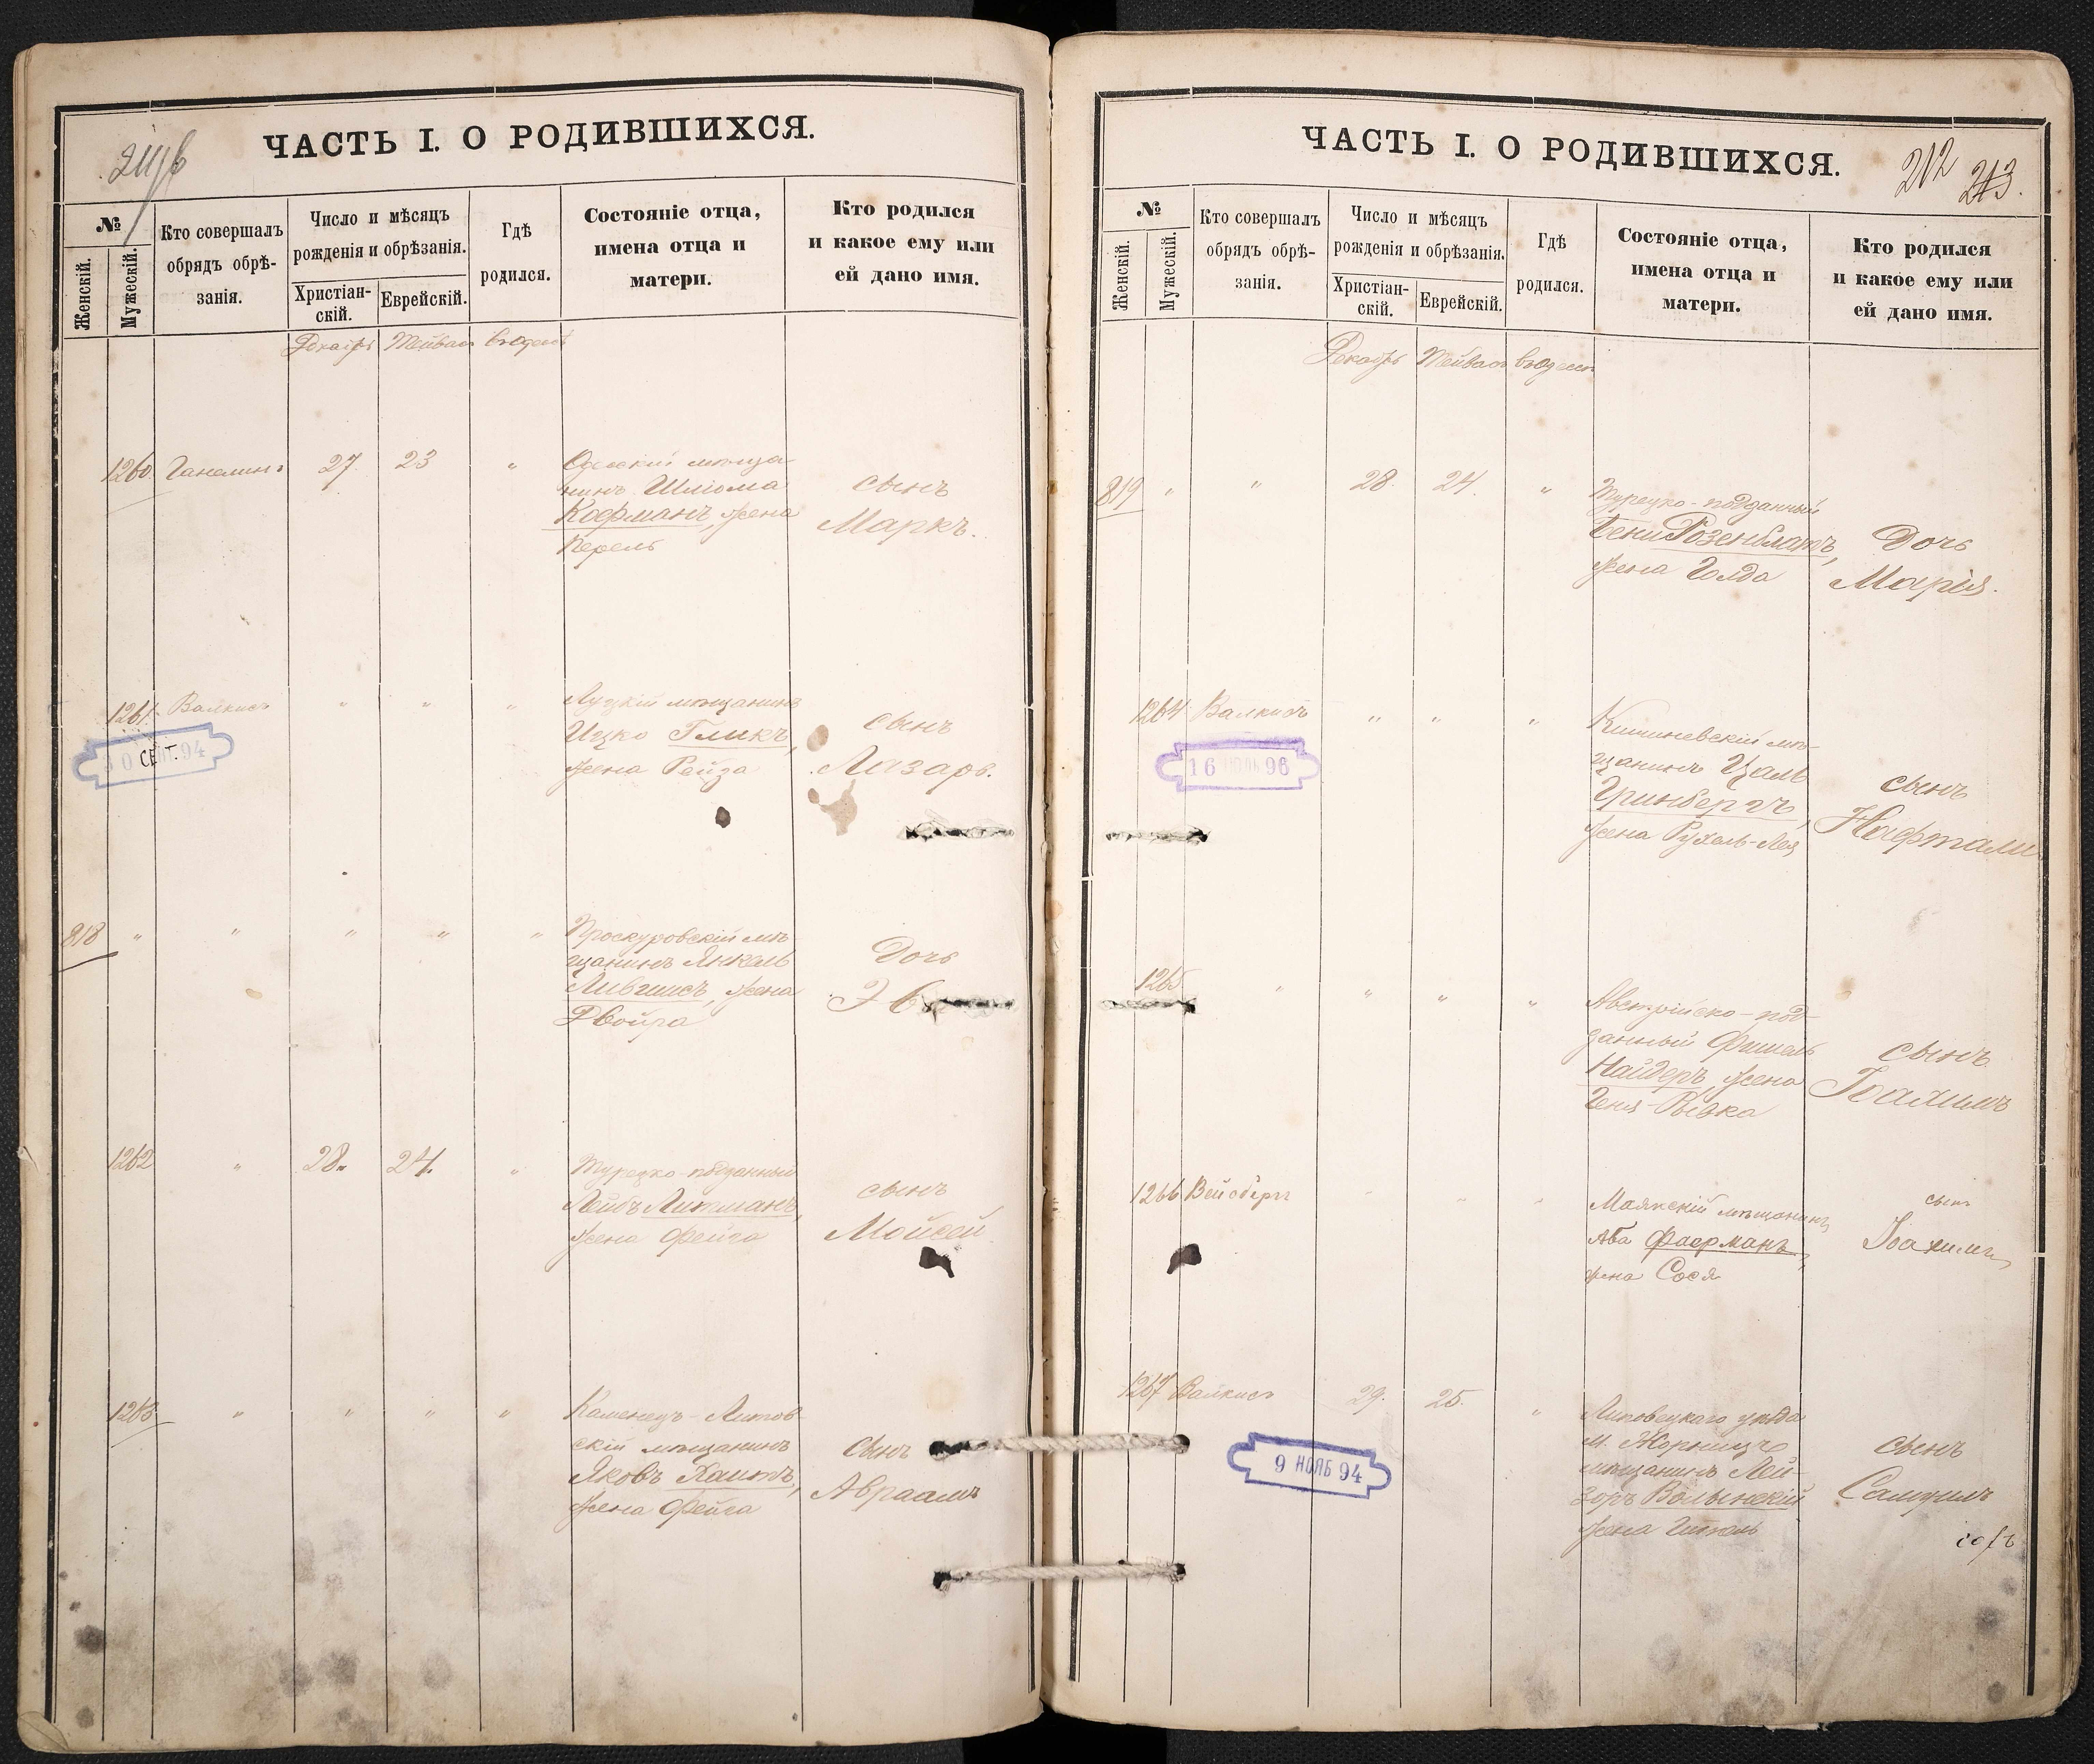 211/б
ЧАСТЬ I. О РОДИВШИХСЯ.
№
Женскій.
Мужескій.
Кто совершалъ
обрядъ обрѣ-
занія.
Число и мѣсяцъ
рожденія и обрѣзанія.
Христіан-
скій.
Еврейскій.
Гдѣ
родился.
Состояніе отца,
имена отца и
матери.
Кто родился
и какое ему или
ей дано имя.
Декабрь Тейвас
1260 27 23 "
Одесскій мѣща-
нинъ Шліома
Кофманъ, жена
Перель
сынъ
Маркъ.
1261 Валкисъ " " "
Луцкій мѣщанинъ
Ицко Гликъ,
жена Рейза
сынъ
Лазарь.
СЕТ. 94
818 " " " " "
Проскуровскій мѣ
щанинъ Янкель
жена
Двойра
Дочь
1262 " 28 24. "
Турецко-подданный
Лейбъ Липманъ,
жена Фейга
сынъ
Мойсей
1263 " " " "
Каменецъ-Литов
скій мѣщанинъ
Яковъ
жена Фейга
сынъ
Авраамъ
ЧАСТЬ I. О РОДИВШИХСЯ.
212 213.
№
Женскій.
Мужескій.
Кто совершалъ
обрядъ обрѣ-
занія.
Число и мѣсяцъ
рожденія и обрѣзанія.
Христіан-
скій.
Еврейскій.
Гдѣ
родился.
Состояніе отца,
имена отца и
матери.
Кто родился
и какое ему или
ей дано имя.
Декабрь Тейвас
819 " " 28 24. "
Турецко-подданный
Бени Розенблатъ,
жена Голда
Дочь
Марія.
1264 Валкисъ " " "
Кишиневскій мѣ-
щанинъ Цаль
Гринбергъ,
жена Рухель-Лея
сынъ
Нафтали
16 96
1265 " " " "
Австрійско-под-
данный Фишель
Найдеръ, жена
Геня-Ривка
сынъ
Іоахимъ
1266 Вейсбергъ " " "
Маякскій мѣщанинъ
Аба Фаерманъ,
жена Сося
сынъ
Іоахимъ
1267 Валкисъ 29. 25. "
Липовецкаго уѣзда
м. Жорнищъ
мѣщанинъ Лей-
зоръ Волынскій
жена Гитель
сынъ
Самуилъ
9 НОЯБ 94